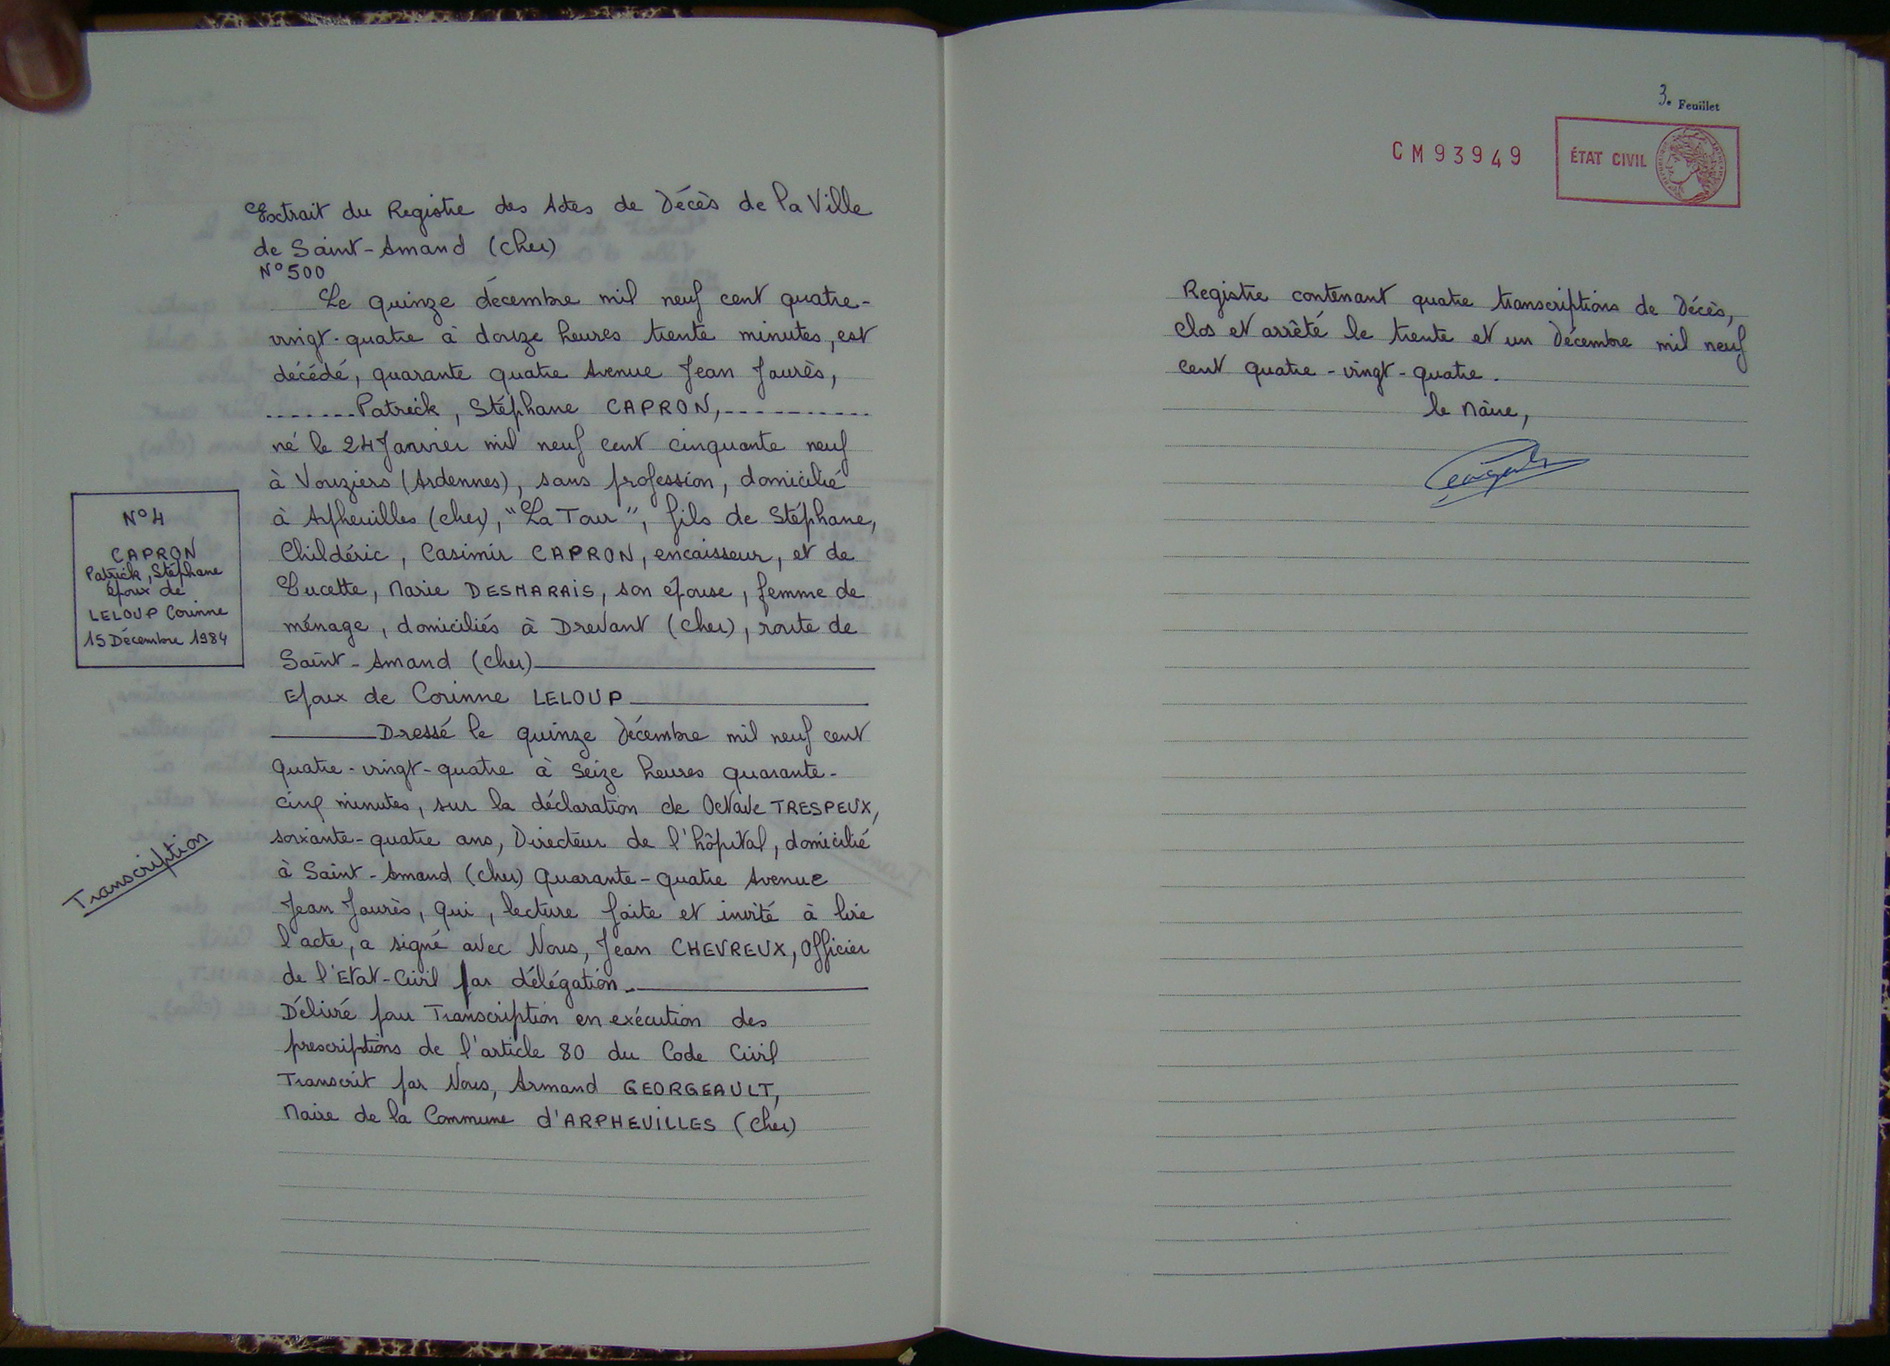 Extrait du Registre des Actes de Décès de la Ville
de Saint-Amand (Cher)
N° 500
Le quinze décembre mil neuf cent quatre-
vingt-quatre à douze heures trente minutes, est
décédé, quarante quatre Avenue Jean Jaurès,
.......Patrick, Stéphane CAPRON,----------
né le 24 Janvier mil neuf cent cinquante neuf
à Vouziers (Ardennes), sans profession, domicilié
à Arpheuilles (Cher), "La Tour", fils de Stéphane,
Childéric, Casimir CAPRON, encaisseur, et de
Lucette, Marie DESMARAIS, son épouse, femme de
ménage, domiciliés à Drevant (Cher), route de
Saint-Amand (Cher)
Epoux de Corinne LELOUP
Dressé le quinze Décembre mil neuf cent
quatre-vingt-quatre à seize heures quarante-
cinq minutes, sur la déclaration de Octave TRESPEUX,
soixante-quatre ans, Directeur de l'hôpital, domicilié
à Saint-Amand (Cher) Quarante-quatre Avenue
Jean Jaurès, qui, lecture faite et invité à lire
l'acte, a signé avec Nous, Jean CHEVREUX, Officier
de l'Etat-Civil par délégation.
Délivré pour Transcription en exécution des
prescriptions de l'article 80 du Code Civil
Transcrit par Nous, Armand GEORGEAULT,
Maire de la Commune d'ARPHEUILLES (Cher)
N° 4
CAPRON
Patrick, Stéphane
époux de
LELOUP Corinne
15 Décembre 1984
Transcription
3. Feuillet
CM93949
ÉTAT CIVIL
Registre contenant quatre transcriptions de Décès,
clos et arrêté le trente et un Décembre mil neuf
cent quatre-vingt-quatre.
le Maire,